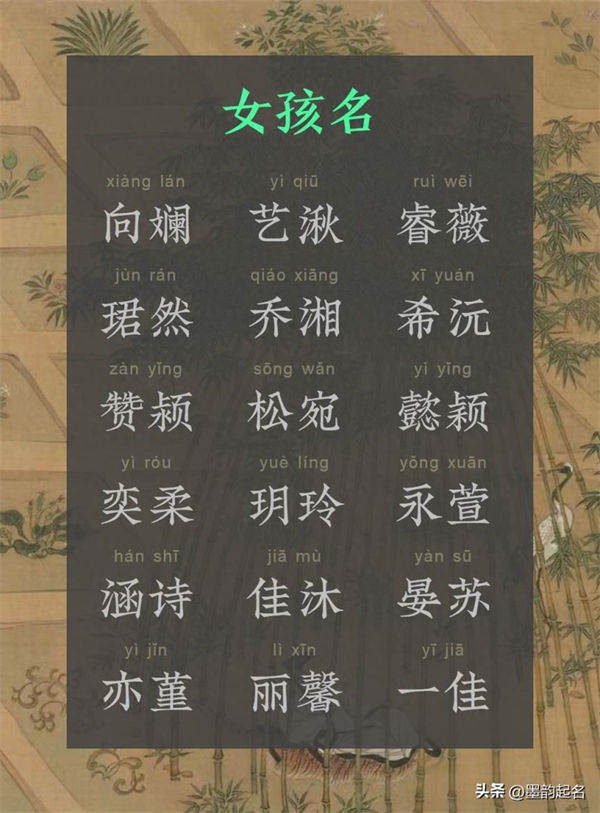 女孩名
xiàng lán yì qiū ruì wēi
向斓 艺湫 睿薇
jùn rán qiáo xiāng xī yuán
珺然 乔湘 希沅
zàn yǐng sōng wǎn yì yǐng
赞颍 松宛 懿颖
yì róu yuè líng yǒng xuān
奕柔 玥玲 永萱
hán shī jiā mù yàn sū
涵诗 佳沐 晏苏
yì jǐn lì xīn yī jiā
亦堇 丽馨 一佳
头条 @墨韵起名